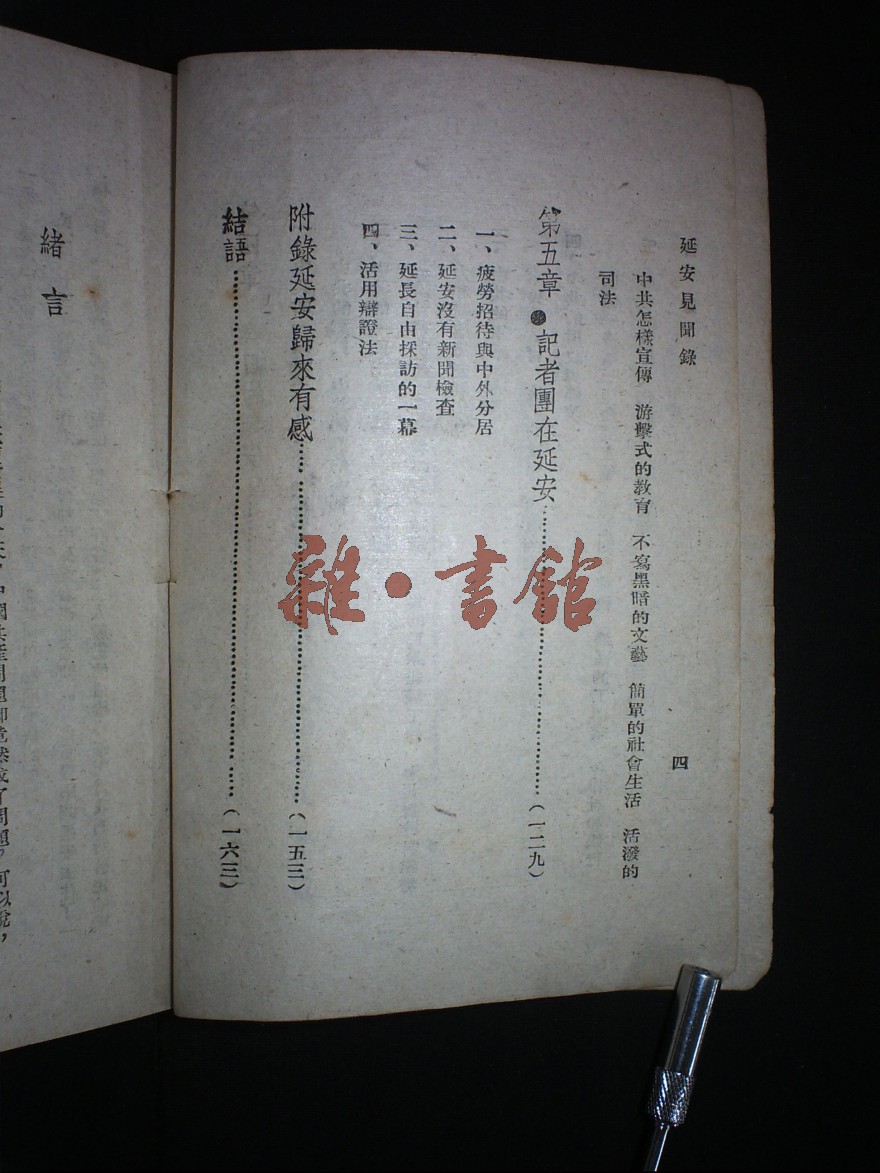 延安見聞錄
四
中共怎樣宣傳　游擊式的教育　不寫黑暗的文藝　簡單的社會生活　活潑的
司法
第五章●記者團在延安……(一二九)
一、疲勞招待與中外分居
二、延安沒有新聞檢查
三、延長自由採訪的一幕
四、活用辯證法
附錄延安歸來有感……(一五三)
結語……(一六三)
雜·書館
緒言